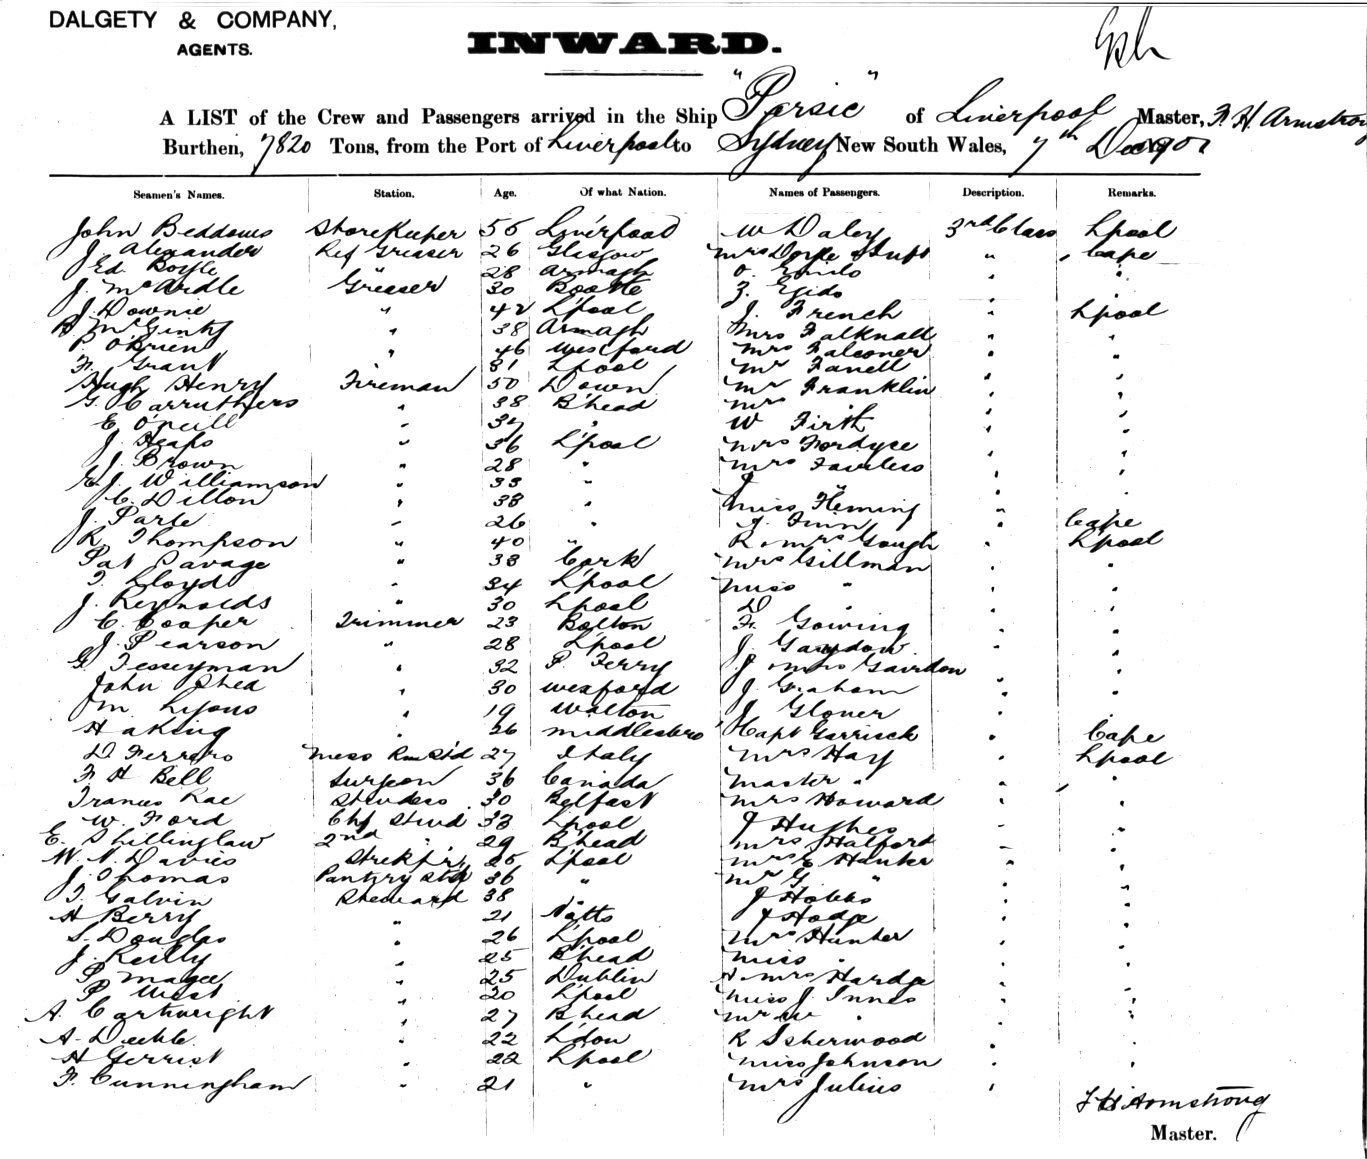 DALGETY & COMPANY,
AGENTS.
INWARD.
A LIST of the Crew and Passengers arrived in the Ship "Persic" of Liverpool Master, F. H. Armstrong
Burthen, 7820 Tons, from the Port of Liverpool to Sydney New South Wales, 7th Dec
Seamen's Names. Station. Age. Of what Nation. Names of Passengers. Description. Remarks.
John Beddows Storekeeper 55 Liverpool W Daley 3rd Class Lpool
J. Alexander Ref Greaser 26 Glasgow Mrs Doyle " Cape
Ed Boyle " 28 Armagh O. " "
J. McArdle Greaser 30 Bootle Z. Egido " "
J. Downie " 42 L'pool J. French " Lpool
McGinty " 38 Armagh Mrs Falknall " "
P OBrien " 46 Wexford Mrs Falconer " "
F. Grant " 31 Lpool Mr Fanell " "
Hugh Henry Fireman 50 Down Mr Franklin " "
G. Carruthers " 38 B'head Mrs " " "
E O'neill " 37 " W Firth " "
J. Heaps " 36 L'pool Mrs Fordyce " "
J. Brown " 28 " Mrs Faireless " "
E. J. Williamson " 33 " J " " "
C. Dillon " 38 " Miss Fleming " "
J. Parle " 26 " J. Finn " Cape
R. Thompson " 40 " R & Mrs Gough " Lpool
Pat Savage " 38 Cork Mrs Gillman " "
T. Lloyd " 34 L'pool Miss " " "
J. Reynolds " 30 Lpool D " " "
C. Cooper Trimmer 23 Bolton F. Gowing " "
J. Pearson " 28 L'pool J. Gaydon " "
G. Teaseyman " 32 P. Ferry J & Mrs Gairdon " "
John Shea " 30 Wexford J Graham " "
M. Lyons " 19 Walton J Glover " "
H Aking " 26 Middlesbro Capt Garrisck " Cape
D Ferraro Mess Rm Std 27 Italy Mrs Hay " Lpool
F H Bell Surgeon 36 Canada Master " " "
Frances Rae Stwdess 30 Belfast Mrs Howard " "
W. Ford Chf Stwd 33 L'pool J Hughes " "
E. Shillinglaw 2nd " 29 B'head Mrs Halford " "
W. N. Davies Strekp'r 25 L'pool Mrs E Hunter " "
J. Thomas Pantry Std 36 " Mr G " " "
T. Galvin Steward 38 " J Hobbs " "
H Berry " 21 Notts J Hodge " "
S. Douglas " 26 L'pool Mrs Hunter " "
J. Reilly " 25 B'head Miss " " "
P. Magee " 25 Dublin H & Mrs Hardge " "
P West " 20 L'pool Miss J. Innes " "
A. Cartwright " 27 B'head Mr W " " "
A. " 22 L'don R Isherwood " "
H Gerrist " 22 Lpool Miss Johnson " "
F. Cunningham " 21 " Mrs Julius "
F H Armstrong
Master.